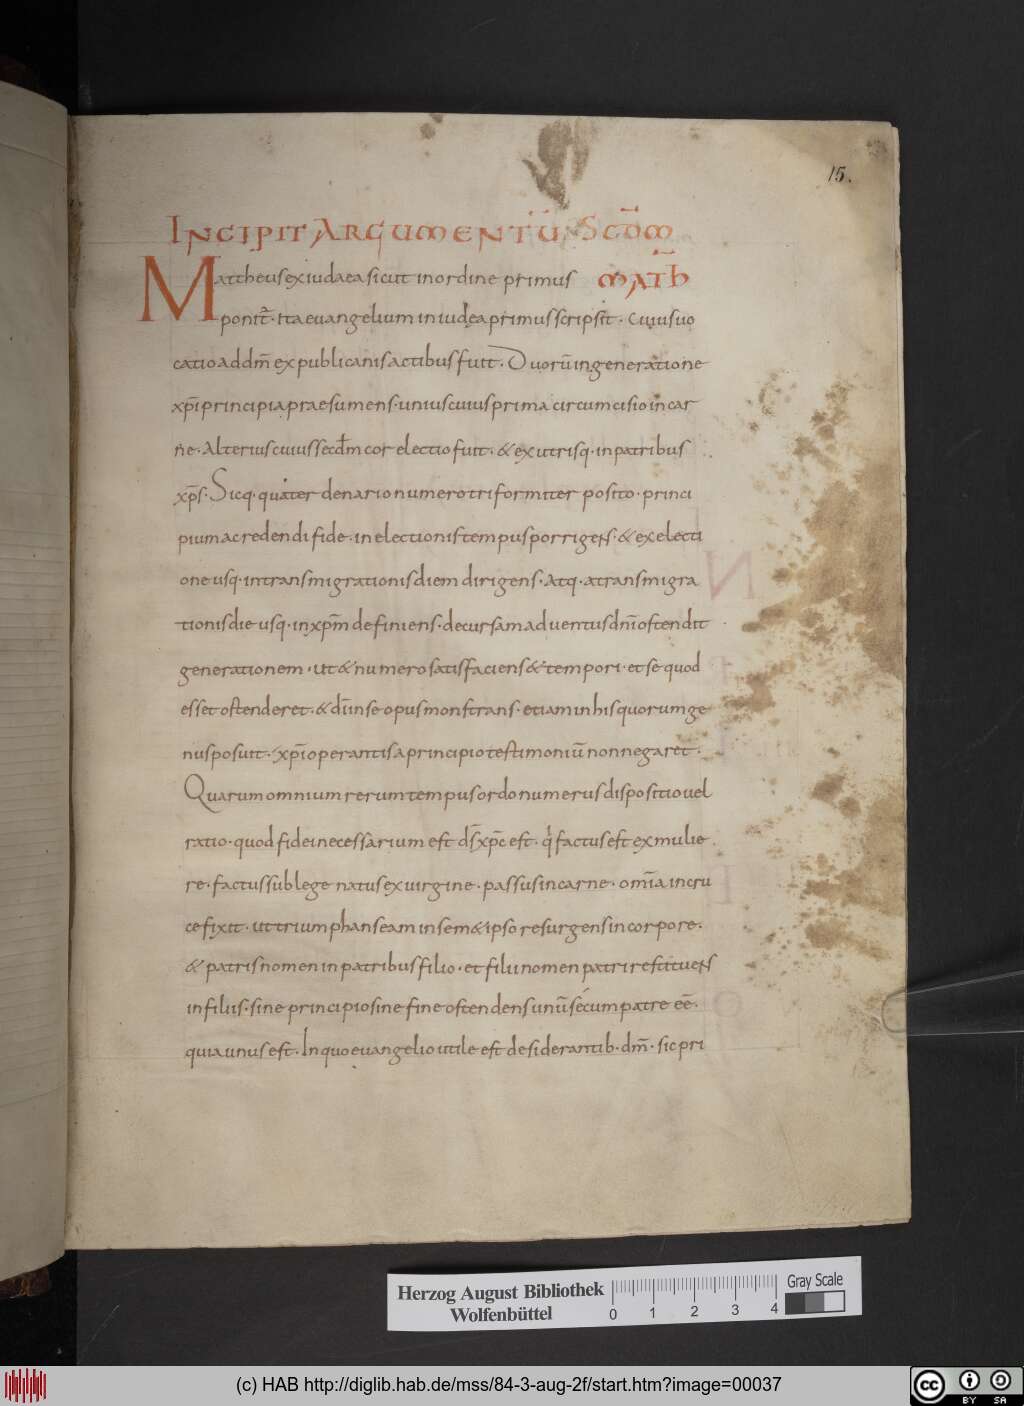 15.
INCIPIT ARGUMENTŪ SCDM̄
MATH̄
Mattheus ex iudaea sicut in ordine primus
ponit̄. Ita evangelium in iudea primus scripsit. Cuius vo
catio ad dm̄ ex publicanis actibus fuit. Duorū in generatione
xp̄i principia praesumens. unius cuius prima circumcisio in car
ne. Alterius cuius secdm̄ cor electio fuit. & ex utrisq. in patribus
xp̄s. Sicq. quater denario numero triformiter posito. princi
pium a credendi fide. in electionis tempus porrigens. & ex electi
one usq. in transmigrationis diem dirigens. Atq. a transmigra
tionis die usq. in xp̄m definiens. decursam adventus dn̄i ostendit
generationem. ut & numero satisfaciens & tempori. et se quod
esset ostenderet. & dī in se opus monstrans. etiam in his quorum ge
nus posuit. xp̄i operantis a principio testimoniū non negaret.
Quarum omnium rerum tempus ordo numerus dispositio vel
ratio. quod fidei necessarium est ds̄ xp̄c est. q factus est ex mulie
re. factus sub lege natus ex virgine. passus in carne. om̄ia in cru
ce fixit. ut triumphans ea in sem& ipso resurgens in corpore.
& patris nomen in patribus filio. et filii nomen patri restituens
in filiis. sine principio sine fine ostendens unū secum patre eē.
quia unus est. In quo evangelio utile est desiderantib. dm̄. sic pri
Herzog August Bibliothek
Wolfenbüttel
0 1 2 3 4
Gray Scale
(c) HAB http://diglib.hab.de/mss/84-3-aug-2f/start.htm?image=00037
cc BY SA